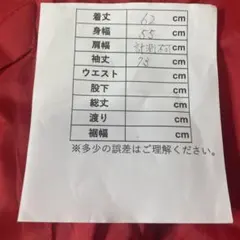 着丈 62 cm
身幅 55 cm
肩幅 計測不可 cm
袖丈 73 cm
ウエスト cm
股下 cm
総丈 cm
渡り cm
裾幅 cm
※多少の誤差はご理解ください。